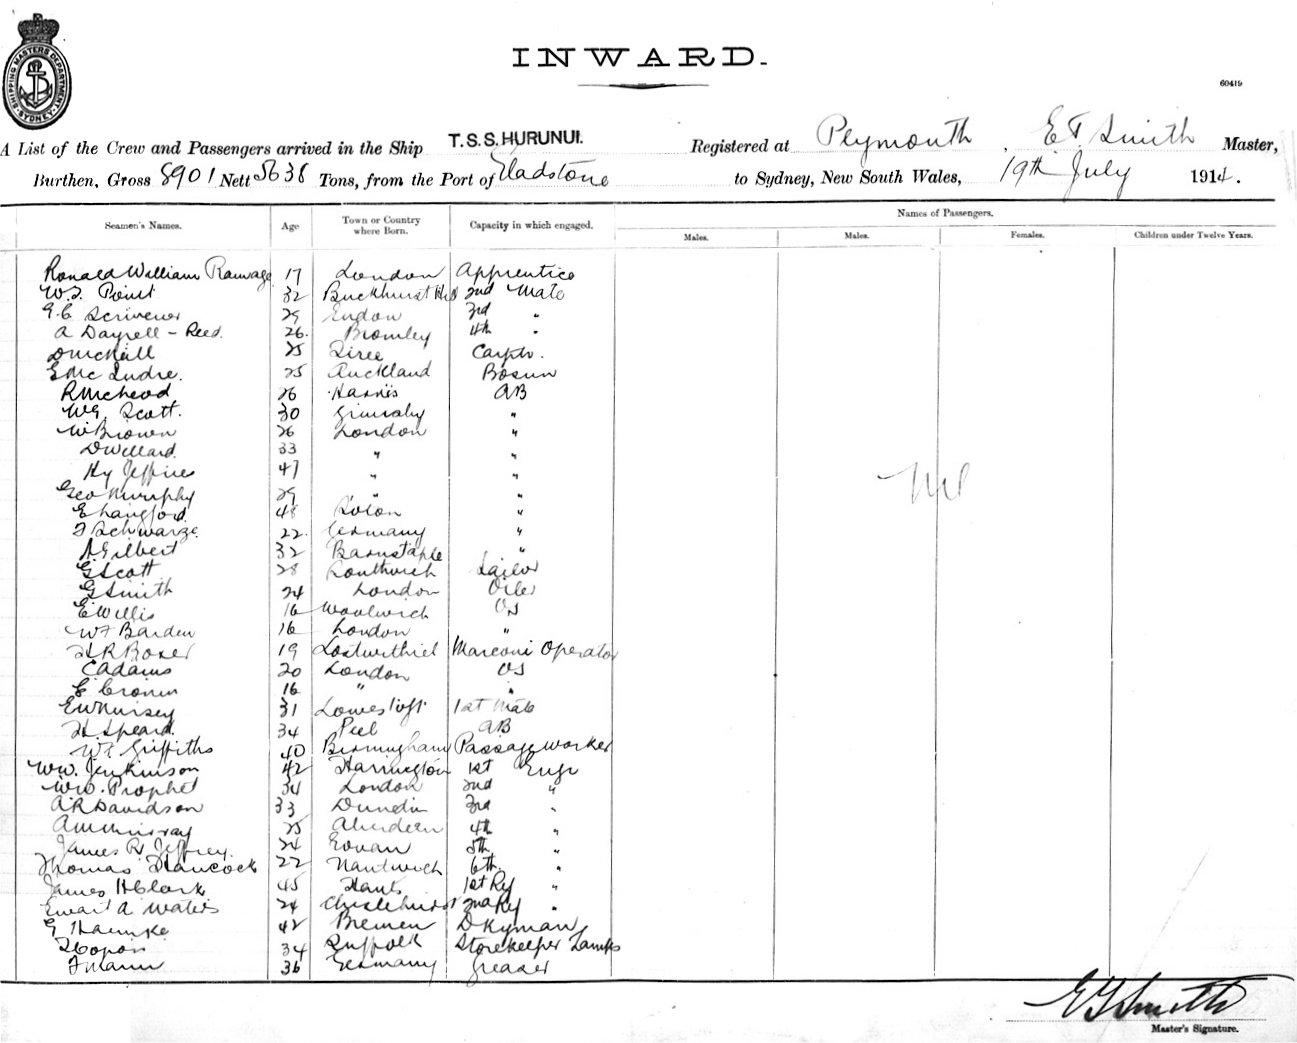 SHIPPING MASTERS DEPARTMENT SYDNEY
INWARD.
60419
A List of the Crew and Passengers arrived in the Ship T.S.S. HURUNUI. Registered at Plymouth, E T. Smith Master,
Burthen, Gross 8901 Nett 5638 Tons, from the Port of Gladstone to Sydney, New South Wales, 19th July 1914.
Seamen's Names. Age Town or Country where Born. Capacity in which engaged. Names of Passengers.
Males. Males. Females. Children under Twelve Years.
Ronald William Ramage 17 London Apprentice
W.J. Point 32 Buckhurst Hill 2nd Mate
G.C Scrivener 29 Endon 3rd "
A Dayrell - Reed. 26. Bromley 4th "
D McNeill 25 Tiree Carptr.
E Mc Indre. 25 Auckland Bosun
R McLeod 26 Harris AB
WG. Scott. 30 Grimsby "
W Brown 26 London "
D Willard 33 " "
Hy Jeffries 47 " "
Geo Murphy 29 " "
E Langford 48 "
F Schwarze 22. Germany "
A Gilbert 32 Barnstaple "
G Scott 28 Sailor
G Smith 24 London Oiler
E Willis 16 Woolwich OS
WF Barden 16 London "
H R Boxer 19 Lostwithiel Marconi Operator
C Adams 20 London OS
E Cronin 16 " "
EW Nursey 31 Lowestoft 1st Mate
H. Speard. 34 Peel AB
W.F. Griffiths 40 Birmingham Passage worker
WW. Jenkinson 42 Harrington 1st Engr
WW. Prophet 34 London 2nd "
A.R Davidson 33 Dunedin 3rd "
A M Murray 25 Aberdeen 4th "
James R Jeffrey. 24 Govan 5th "
Thomas Hancock 22 Nantwich 6th "
James H Clark 45 Hants 1st Rf "
Ewart A Waters 24 Chislehurst 2nd Rf "
G Haemke 42 Bremen Dkyman
34 Suffolk Storekeeper Lamps
F Mann 36 Germany Greaser
Nil
E T Smith
Master's Signature.